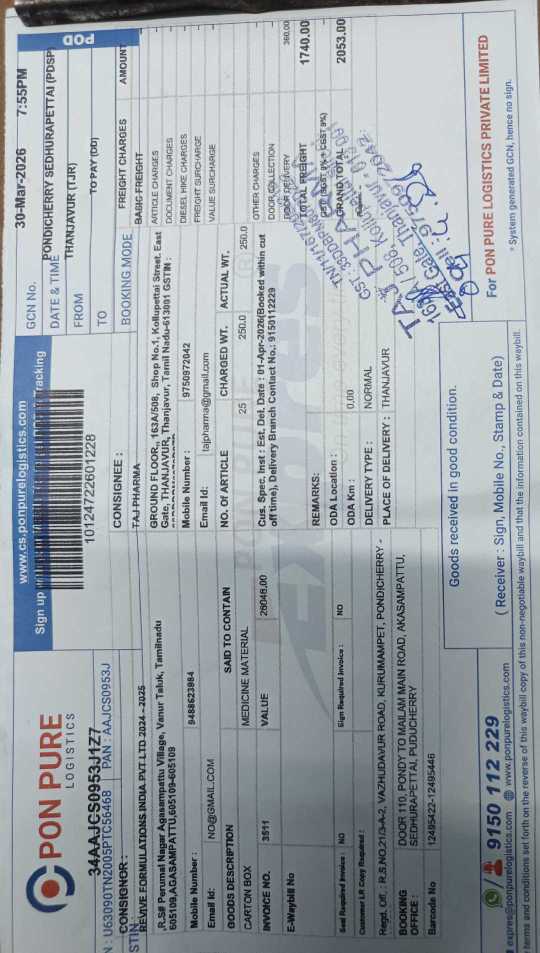 PON PURE
LOGISTICS
34AAJCS0953J1Z7
N : U63090TN2005PTC56468 PAN : AAJCS0953J
www.cs.ponpurelogistics.com
Sign up
Tracking
101247722601228
GCN No.
DATE & TIME 30-Mar-2026 7:55PM
FROM PONDICHERRY SEDHURAPETTAI (PDSP)
TO THANJAVUR (TJR)
BOOKING MODE TO PAY (DD)
POD
CONSIGNOR :
STIN
REVIVE FORMULATIONS INDIA PVT LTD 2024 - 2025
,R.S# Perumal Nagar Agasampattu Village, Vanur Taluk, Tamilnadu
605109,AGASAMPATTU,605109-605109
Mobile Number : 9488623984
Email Id: NO@GMAIL.COM
CONSIGNEE :
TAJ PHARMA
GROUND FLOOR,, 163A/508, Shop No.1, Kollupettai Street. East
Gate, THANJAVUR, Thanjavur, Tamil Nadu-613001 GSTIN :
Mobile Number : 9750972042
Email Id: tajpharma@gmail.com
GOODS DESCRIPTION SAID TO CONTAIN NO. Of ARTICLE CHARGED WT. ACTUAL WT.
CARTON BOX MEDICINE MATERIAL 25 250.0 250.0
INVOICE NO. 3511 VALUE 26048.00
E-Waybill No
Cus. Spec. Inst : Est, Del. Date : 01-Apr-2026(Booked within cut
off time), Delivery Branch Contact No.: 9150112229
REMARKS:
Seal Required Invoice : NO Sign Required Invoice : NO
Customer LR Copy Required :
ODA Location :
ODA Km : 0.00
DELIVERY TYPE : NORMAL
PLACE OF DELIVERY : THANJAVUR
Regd. Off. : R.S.NO,21/3-A-2, VAZHUDAVUR ROAD, KURUMAMPET, PONDICHERRY -
BOOKING OFFICE : DOOR 110, PONDY TO MAILAM MAIN ROAD, AKASAMPATTU,
SEDHURAPETTAI, PUDUCHERRY
Barcode No 12495422-12495446
FREIGHT CHARGES AMOUNT
BASIC FREIGHT
ARTICLE CHARGES
DOCUMENT CHARGES
DIESEL HIKE CHARGES
FREIGHT SURCHARGE
VALUE SURCHARGE
OTHER CHARGES
DOOR COLLECTION
DOOR DELIVERY 360.00
TOTAL FREIGHT 1740.00
GRAND TOTAL 2053.00
TAJ PHARMA
Goods received in good condition.
( Receiver : Sign, Mobile No., Stamp & Date)
For PON PURE LOGISTICS PRIVATE LIMITED
* System generated GCN, hence no sign.
9150 112 229
expres@ponpurelogistics.com www.ponpurelogistics.com
terms and conditions set forth on the reverse of this waybill copy of this non-negotiable waybill and that the information contained on this waybill.